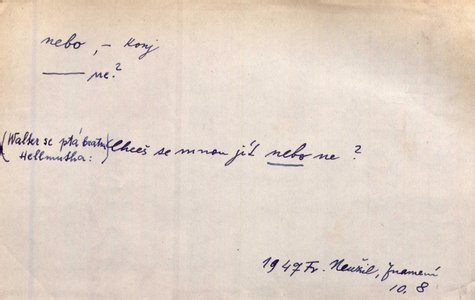 nebo, – konj
—— ne?
(Walter se ptá bratra
Hellmutha:) Chceš se mnou jít nebo ne?
1947 Fr. Neužil, Znamení
10. 8